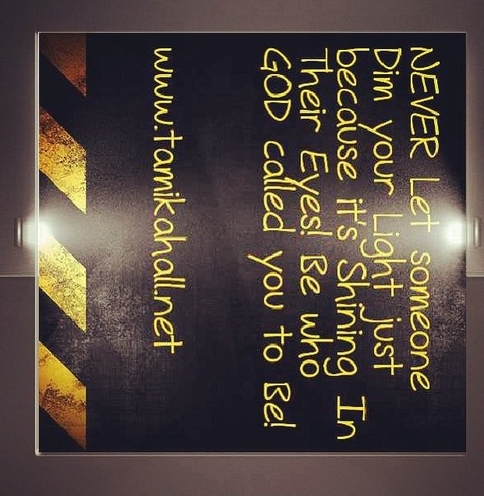 NEVER Let someone
Dim your Light just
because it's Shining In
Their Eyes! Be who
GOD called you to Be!
www.tamikahall.net